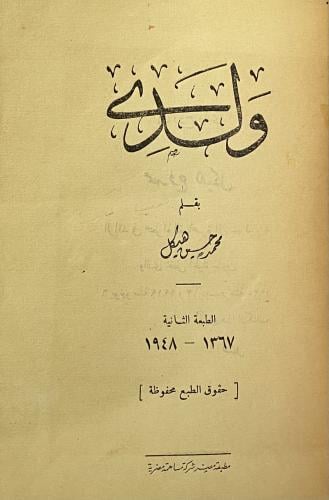 وَلَدِي
بقلم
محمد حسين هيكل
الطبعة الثانية
١٣٦٧ – ١٩٤٨
[ حقوق الطبع محفوظة ]
مطبعة مصر شركة مساهمة مصرية